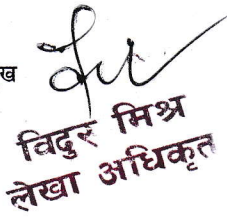 ख
विदुर मिश्र
लेखा अधिकृत